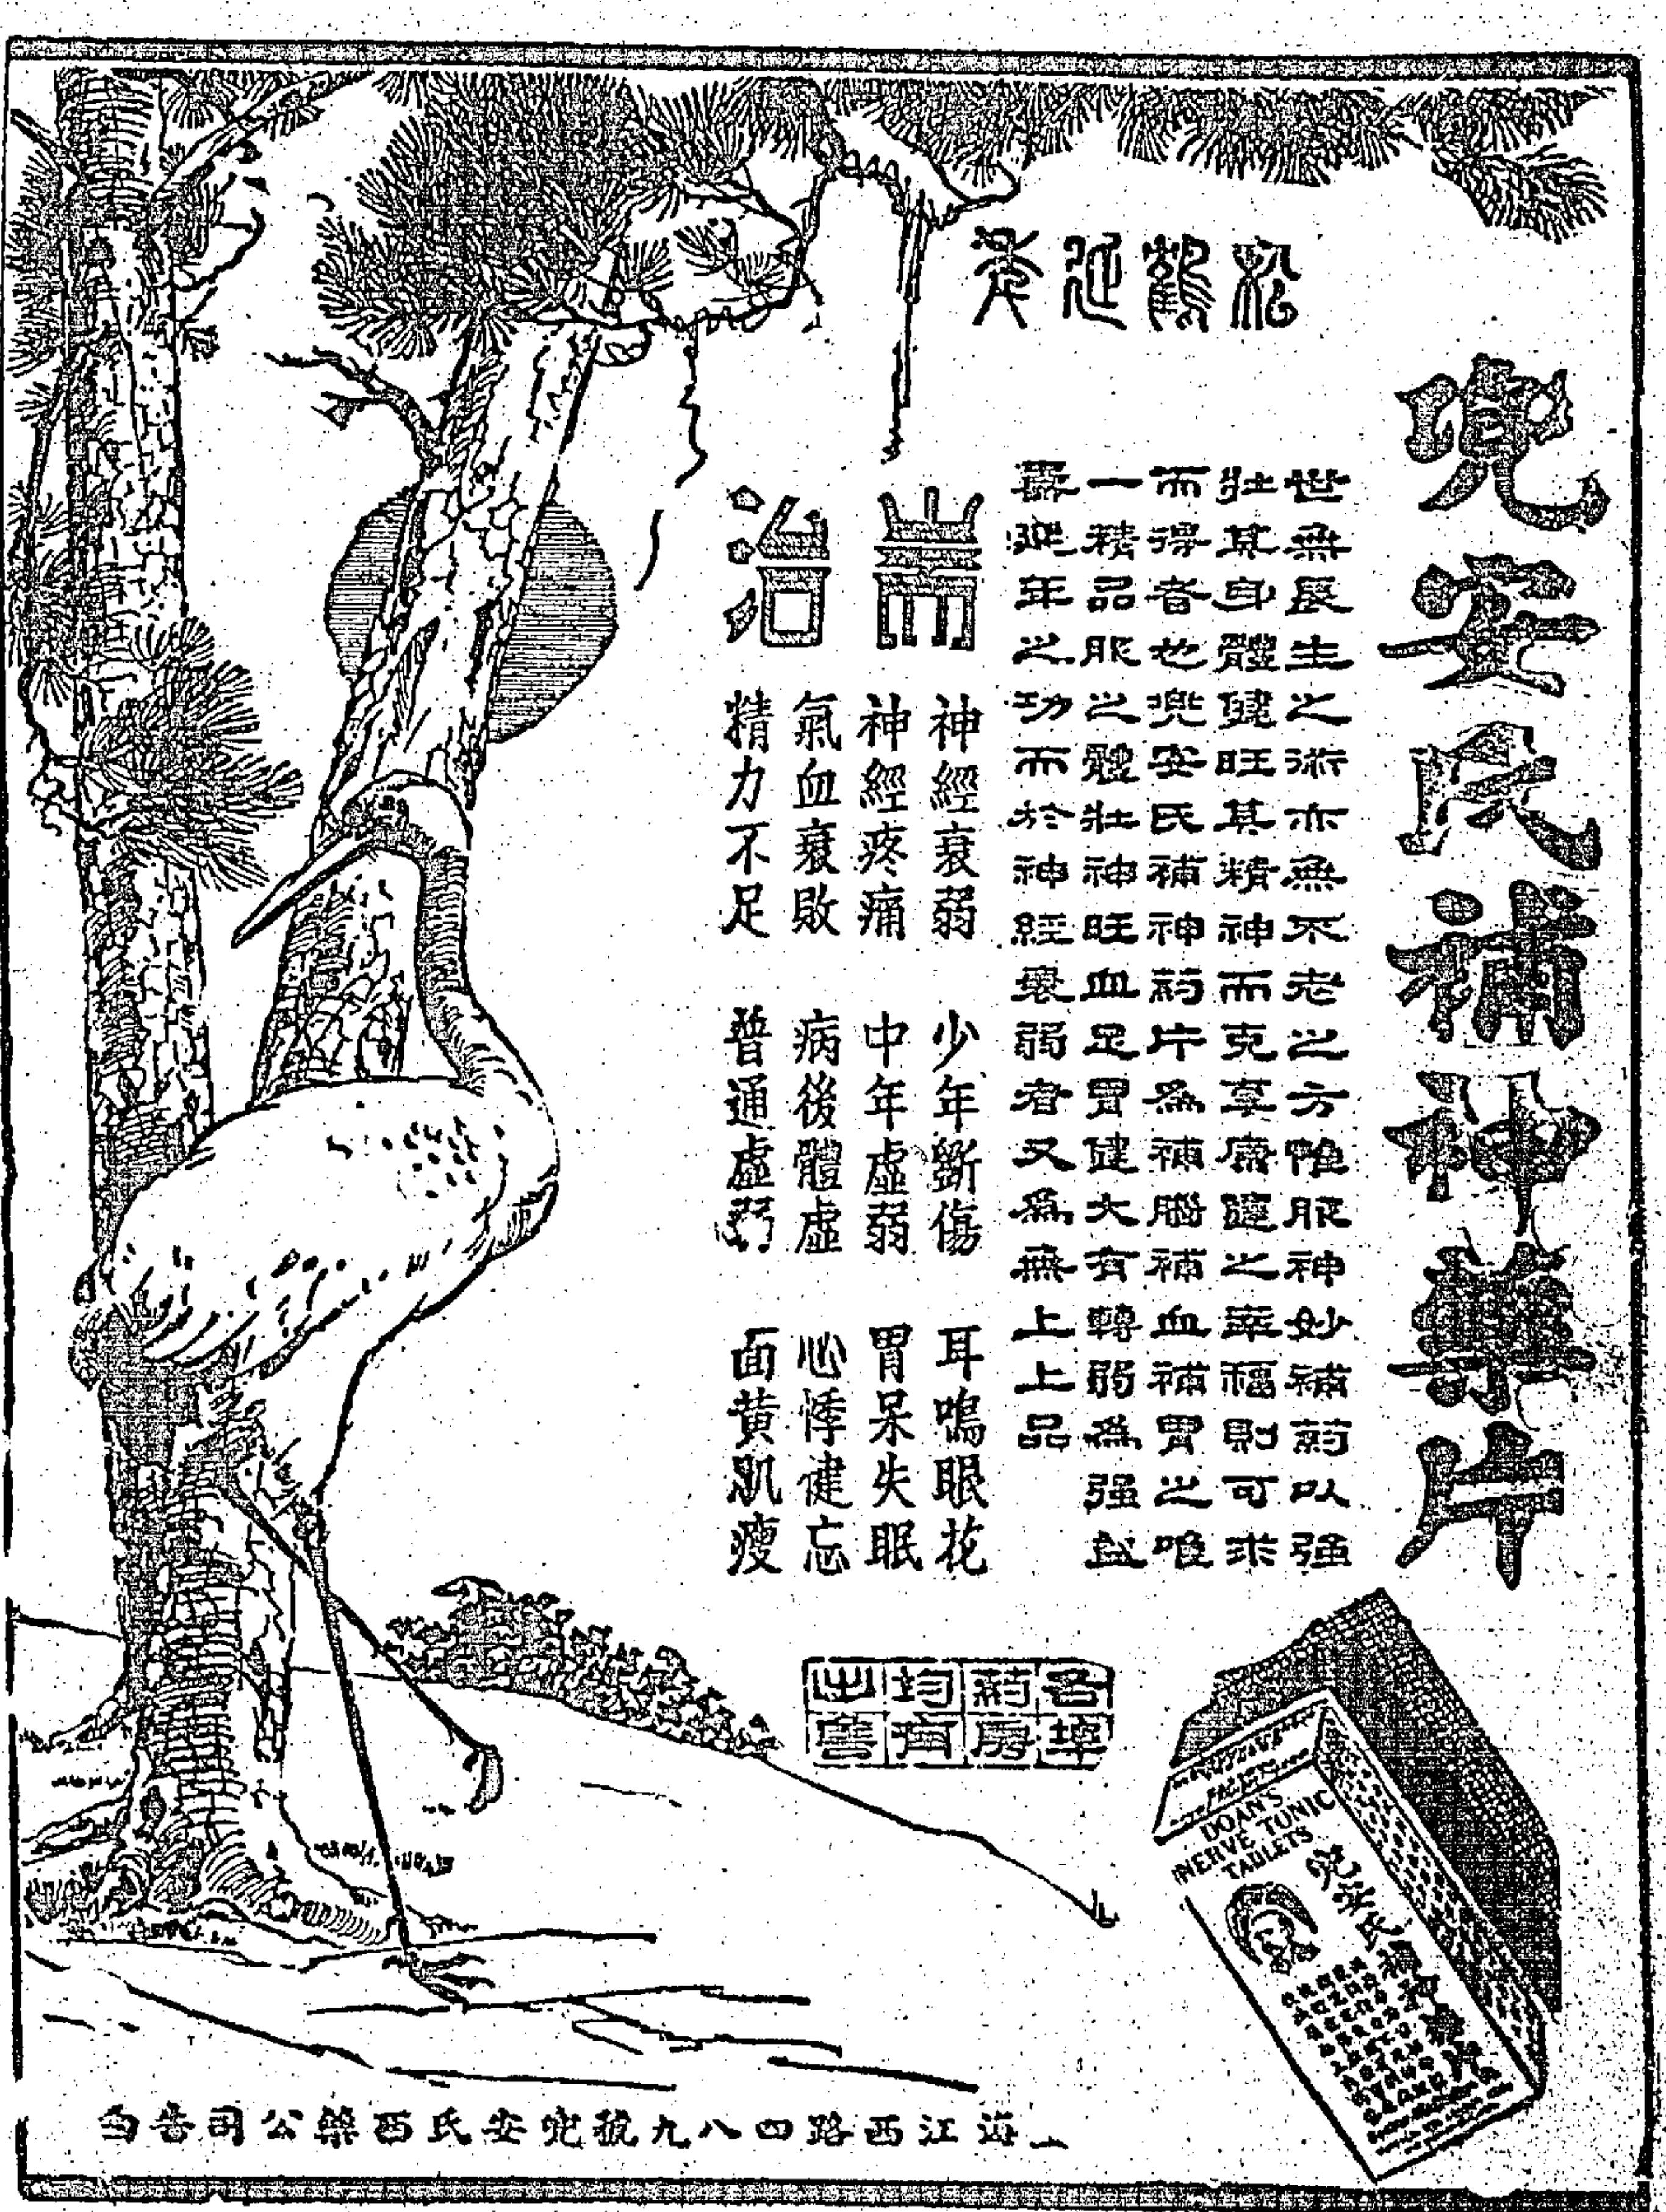 松鶴延年
兜安氏補神藥片
世無長生之術亦無不老之方惟服神妙補葯以强
壯其身體健旺其精神而克享康健之幸福則可求
而得者也兜安氏補神葯片為補腦補血補胃之唯
一精品服之體壯神旺血足胃健大有轉弱為强益
壽延年之功而於神經衰弱者又為無上上品
耑治
神經衰弱 少年斵傷 耳鳴眼花
神經疼痛 中年虛弱 胃呆失眠
氣血衰敗 病後體虛 心悸健忘
精力不足 普通虛弱 面黄肌瘦
各埠
葯房
均有
出售
DOAN'S
NERVE TONIC
TABLETS
兜安氏補神藥片
上海江西路四八九號兜安氏西藥公司啓